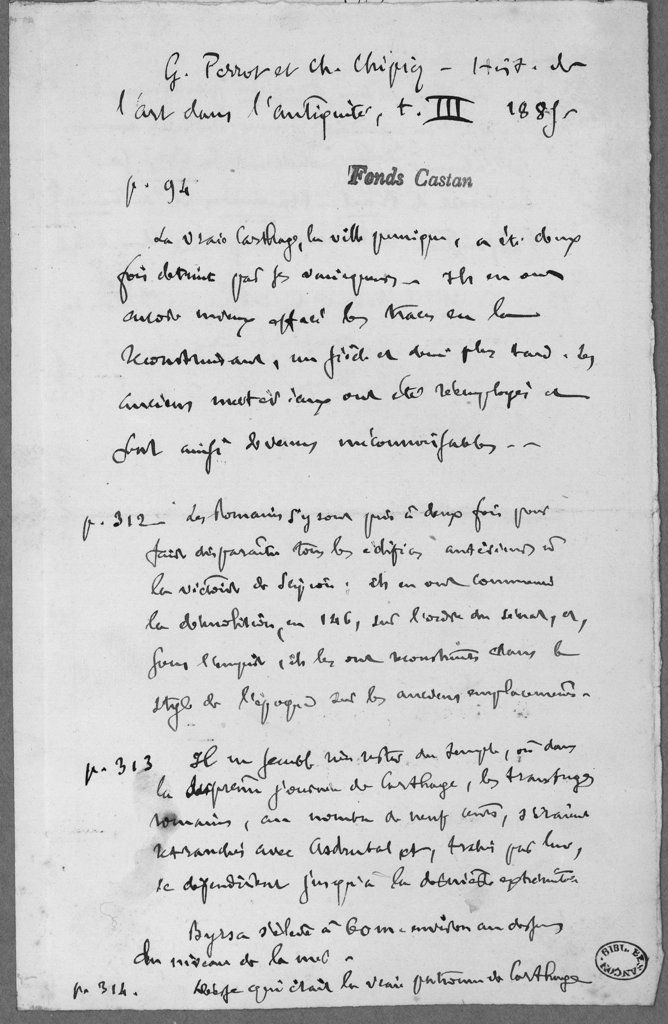 G. Perrot et Ch. Chipiez – Hist. de
l'art dans l'antiquité, t. III 1885 –
p. 94
Fonds Castan
La vraie Carthage, la ville punique, a été deux
fois détruite par ses vainqueurs – Ils en ont
encore mieux effacé les traces en la
reconstruisant, un siècle et demi plus tard. Les
anciens matériaux ont été réemployés et
sont ainsi devenus méconnaissables – –
p. 312 – Les Romains s'y sont pris à deux fois pour
faire disparaître tous les édifices antérieurs à
la victoire de Scipion : ils en ont commencé
la démolition, en 146, sur l'ordre du sénat, et,
sous l'empire, ils les ont reconstruits dans le
style de l'époque sur les anciens emplacements –
p. 313 Il ne semble rien rester du temple, où dans
la journée de Carthage, les transfuges
romains, au nombre de neuf cents, s'étaient
retranchés avec Asdrubal et, trahis par lui,
se défendirent jusqu'à la dernière extrémité
Byrsa s'élève à 60 m environ au dessus
du niveau de la mer –
p. 314. qui était la vraie patronne de Carthage
BIBL. DE
BESANÇON